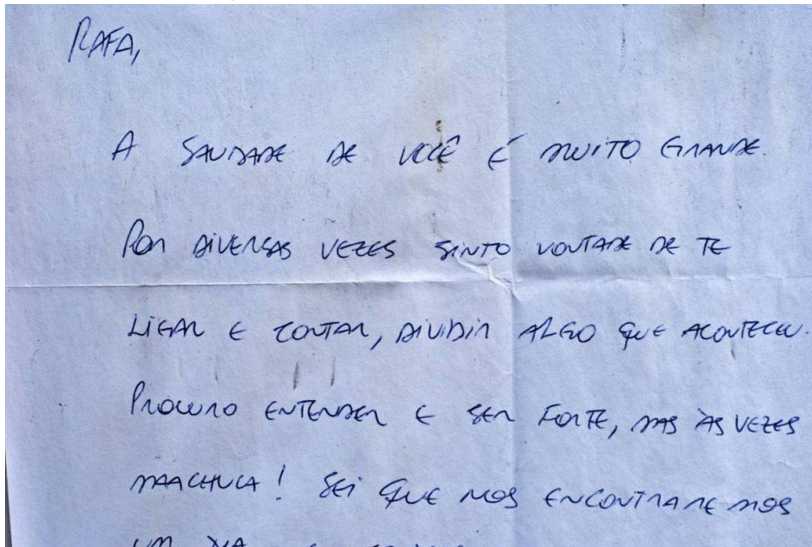 RAFA,
A SAUDADE DE VOCÊ É MUITO GRANDE.
POR DIVERSAS VEZES SINTO VONTADE DE TE
LIGAR E CONTAR, DIVIDIR ALGO QUE ACONTECEU.
PROCURO ENTENDER E SER FORTE, MAS ÀS VEZES
MACHUCA! SEI QUE NOS ENCONTRAREMOS
UM DIA